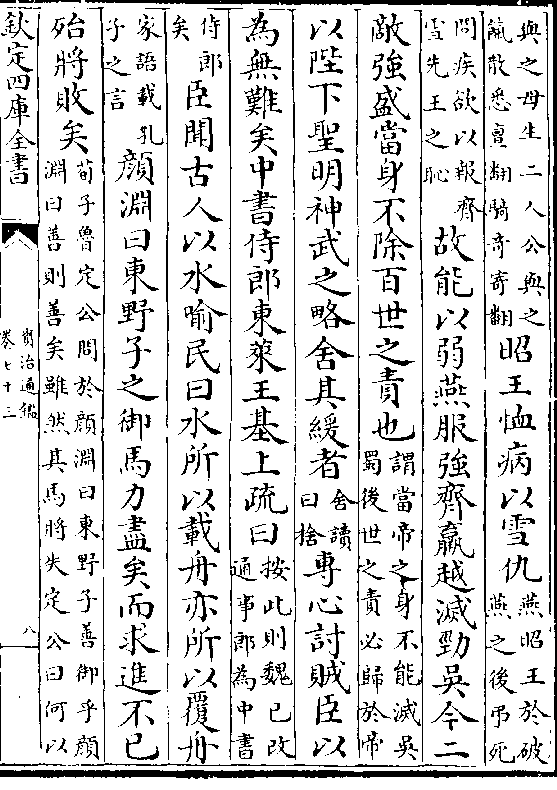 與之母生二人公與之
飮散悉亶翻騎奇寄翻
昭王恤病以雪仇
燕昭王於破
燕之後弔死
問疾欲以報齊
雪先王之恥
故能以弱燕服強齊羸越滅勁吳今二
敵強盛當身不除百世之責也
謂當帝之身不能滅吳
蜀後世之責必歸於帝
以陛下聖明神武之略舍其緩者
舍讀
曰捨
專心討賊臣以
為無難矣中書侍郎東萊王基上疏曰
按此則魏已改
通事郎為中書
侍郎
矣
臣聞古人以水喻民曰水所以載舟亦所以覆舟
家語載孔
子之言
顔淵曰東野子之御馬力盡矣而求進不已
殆將敗矣
荀子魯定公問於顔淵曰東野子善御乎顔
淵曰善則善矣雖然其馬將失定公曰何以
欽定四庫全書
資治通鑑
卷七十三
八